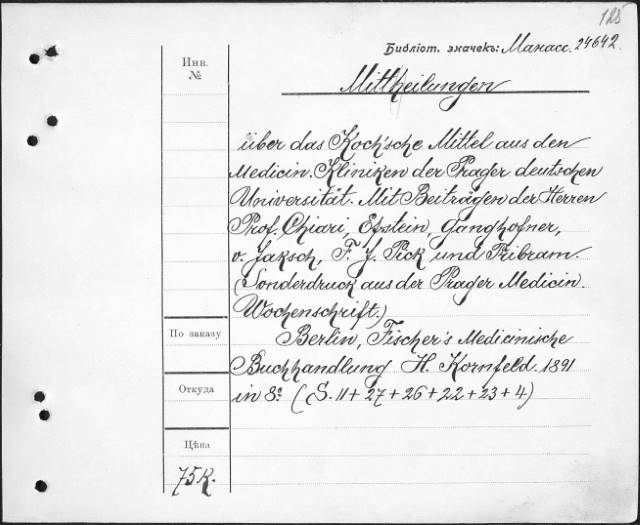 125
Библіот. значекъ: Манасс. 24642.
Инв.
№
Mittheilungen
über das Koch'sche Mittel aus den
Medicin. Kliniken der Prager deutschen
Universität. Mit Beiträgen der Herren
Prof. Chiari, Epstein, Ganghofner,
v. Jaksch, F. J. Pick und Pribram.
(Sonderdruck aus der Prager Medicin.
Wochenschrift.)
По заказу
Berlin, Fischer's Medicinische
Buchhandlung H. Kornfeld. 1891
Откуда
in 8º (S. 11 + 27 + 26 + 22 + 23 + 4)
Цѣна
75 K.